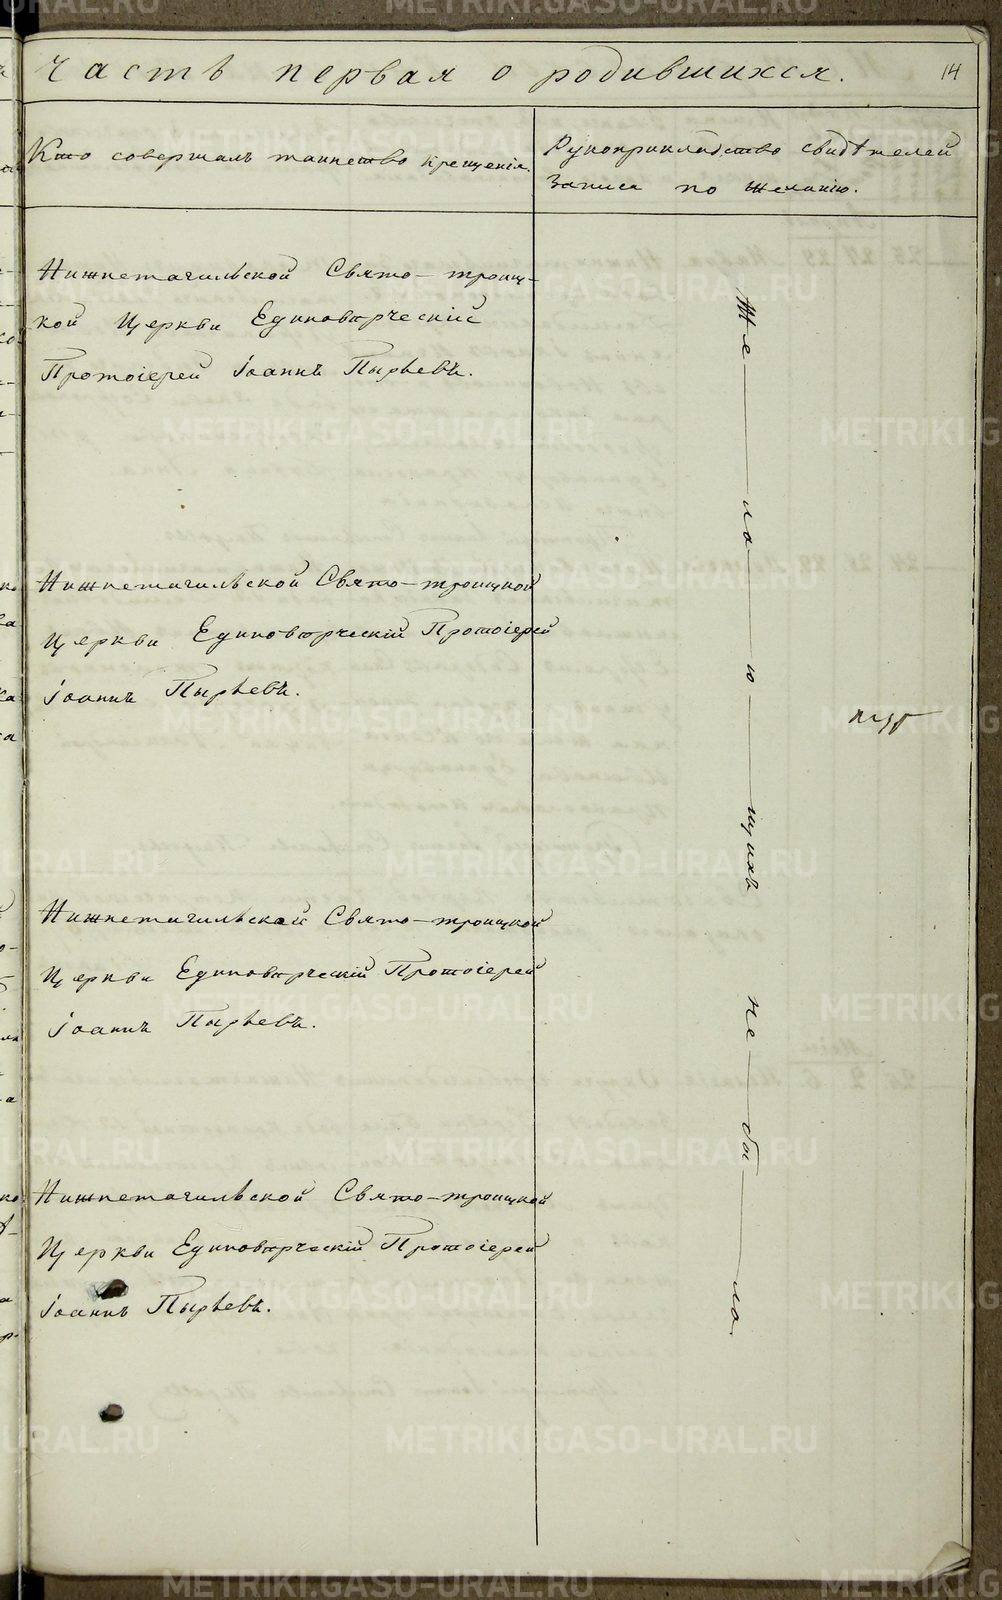 часть первая о родившихся.
14
Кто совершалъ таинство крещенія.
Рукоприкладство свидѣтелей
записи по желанію.
Нижнетагильской Свято-троиц-
кой Церкви Единовѣрческій
Протоіерей Іоаннъ Пырьевъ.
Нижнетагильской Свято-троицкой
Церкви Единовѣрческій Протоіерей
Іоаннъ Пырьевъ.
Нижнетагильской Свято-троицкой
Церкви Единовѣрческій Протоіерей
Іоаннъ Пырьевъ.
Нижнетагильской Свято-троицкой
Церкви Единовѣрческій Протоіерей
Іоаннъ Пырьевъ.
Же—ла—ю—щихъ не—бы—ло.
METRIKI.GASO-URAL.RU